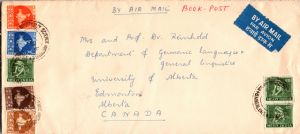 BY AIR MAIL BOOK-POST
BY AIR MAIL
PAR AVION
Mrs and Prof. Dr. Reinhold
Department of Germanic languages &
general linguistics
University of Alberta
Edmonton
Alberta
CANADA